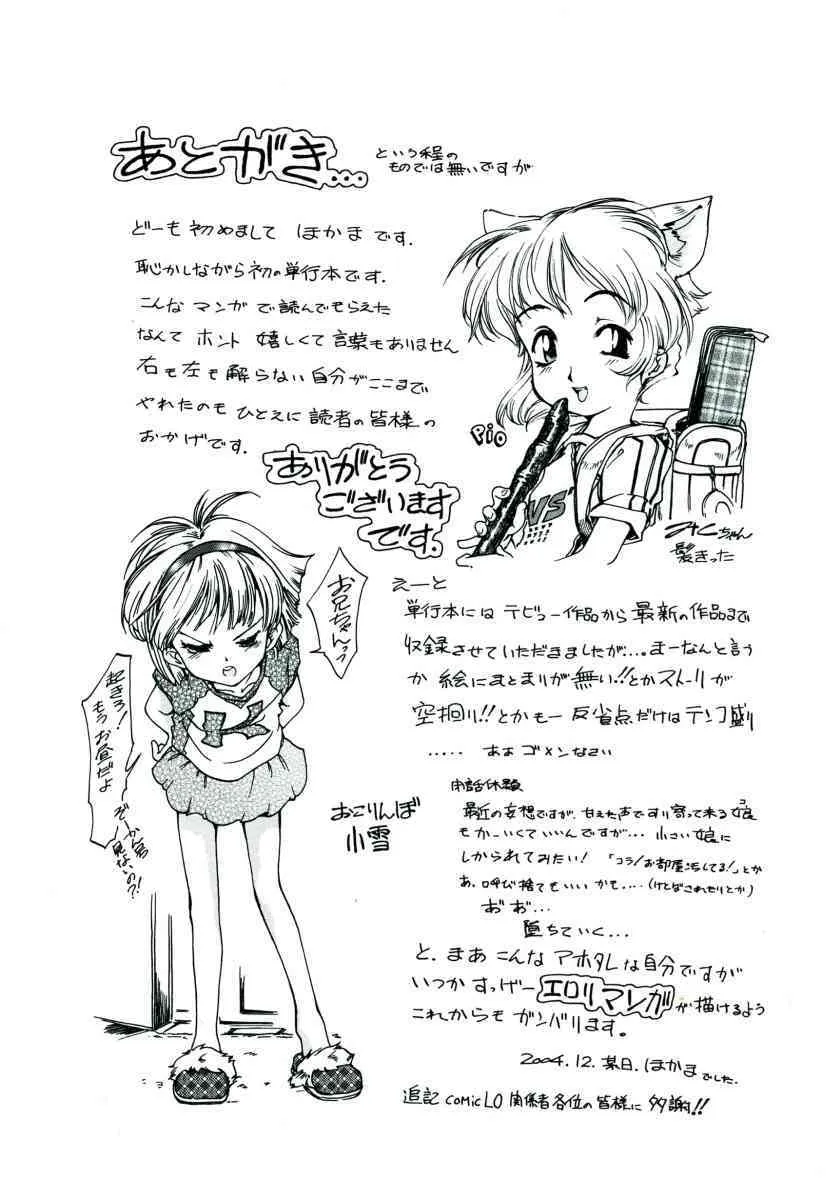 あとがき…
という程の
ものでは無いですが
どーも初めまして ほかまです.
恥かしながら初の単行本です.
こんな マンガ で読んでもらえた
なんて ホント 嬉しくて言葉もありません
右も左も解らない自分がここまで
やれたのも ひとえに読者の皆様の
おかげです.
ありがとう
ございます
です.
Pio
ちゃん
髪きった
お兄ちゃんっ
起きろ!
もうお昼だよ
見ないの?!
おこりんぼ
小雪
えーと
単行本には デビュー作品から最新の作品まで
収録させていただきましたが…. まーなんと言う
か 絵にまとまりが無い!!とかストーリが
空回り!!とかもー 反省点だけはテンコ盛り
..... あぁ ゴメンなさい
閑話休題
最近の妄想ですが、甘えた声ですり寄って来る娘
コ
もかーいくていいんですが… 小さい娘に
しかられてみたい! 「コラ!お部屋汚してる!」とか
あ、呼び捨てもいいかも….(けとばされたりとか)
おお…
堕ちていく…
と、まあ こんな アホタレな自分ですが
いつか すっげー エロリマンガ が描けるよう
これからも ガンバリます。
2004.12.某日.ほかまでした.
追記 comic LO 関係者各位の皆様に 多謝!!